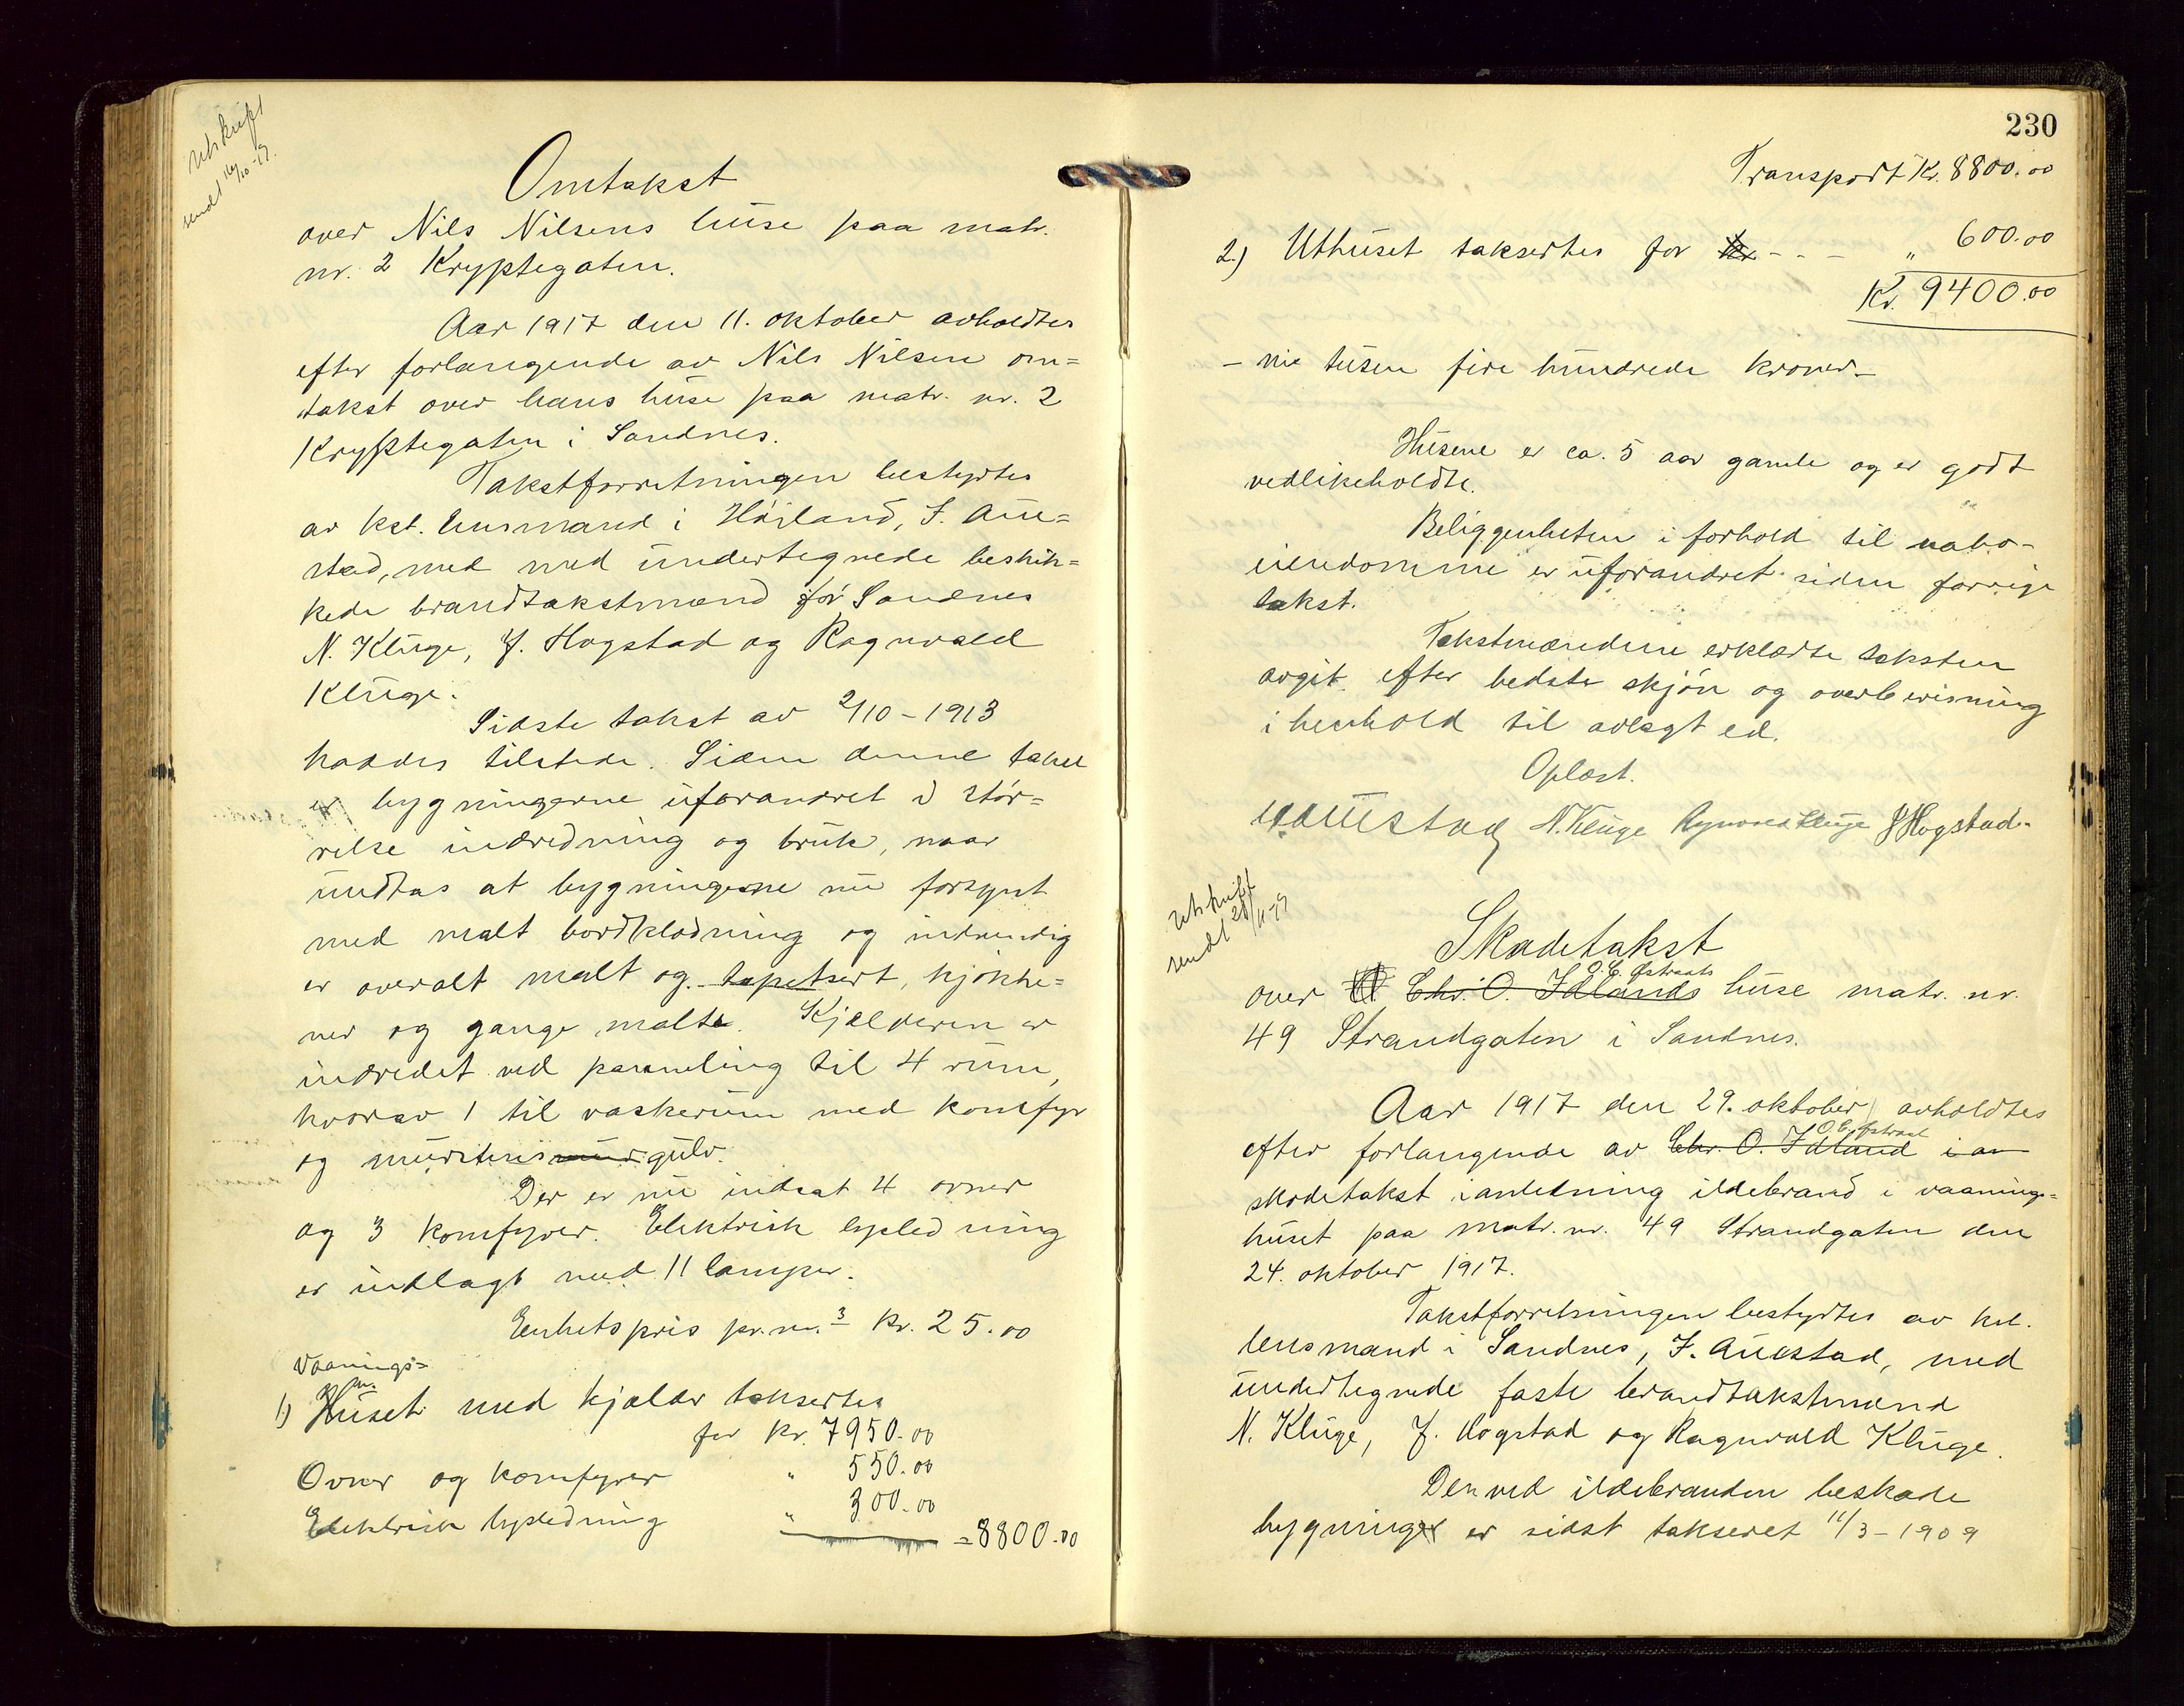 Utskrift
sendt 16/10-17.
Omtakst
over Nils Nilsens huse paa matr.
nr. 2 Kryptegaten.
Aar 1917 den 11. oktober avholdtes
efter forlangende av Nils Nilsen om=
takst over hans huse paa matr. nr. 2
Kryptegaten i Sandnes.
Takstforretningen bestyrtes
av kst. lensmand i Høiland, J. Aue=
stad, med med undertegnede beskik=
kede brandtakstmænd for Sandnes
N. Kluge, J. Hogstad og Ragnvald
Kluge.
Sidste takst av 2/10-1913
haddes tilstede. Siden denne takst
er bygningerne uforandret i stør=
relse indredning og bruk, naar
undtas at bygningerne nu forsynt
med malt bordklædning og indvendig
er overalt malt og tapetsert, kjøkke=
ner og gange malte. Kjælderen er
indredet ved panneling til 4 rum,
hvorav 1 til vaskerum med komfyr
og murstens gulv.
Der er nu indsat 4 ovner
og 3 komfyrer. Elektrisk lysledning
er indlagt med 11 lamper.
Enhetspris pr. m.3 kr. 25.00
Vaanings=
1) Huset med kjælder taksertes
for kr. 7950.00
Ovner og komfyrer " 550.00
Elektrisk lysledning " 300.00
=8800.00
230
Transport Kr. 8800.00
2.) Uthuset taksertes for kr - - - " 600.00
Kr. 9400.00
- ni tusen fire hundrede kroner -
Husene er ca. 5 aar gamle og er godt
vedlikeholdte.
Beliggenheten i forhold til nabo-
eiendomme er uforandret siden forrige
takst.
Takstmændene erklærte taksten
avgit efter bedste skjøn og overbevisning
i henhold til avlagt ed.
Oplæst.
J. Auestad N. Kluge Ragnvald Kluge J Hogstad.
Utskrift
sendt 28/11-17
Skadetakst
O. E. Østraats
over Chr. O. Idlands huse matr. nr.
49 Strandgaten i Sandnes.
Aar 1917 den 29. oktober avholdtes
O. E. Østraat
efter forlangende av Chr. O. Idland i an
skadetakst i anledning ildebrand i vaanings=
huset paa matr. nr. 49 Strandgaten den
24. oktober 1917.
Takstforretningen bestyrtes av kst.
lensmand i Sandnes, J. Auestad, med
undertegnede faste brandtakstmænd
N. Kluge, J. Hogstad og Ragnvald Kluge.
Den ved ildebranden beskade
bygninger er sidst takseret 11/3-1909